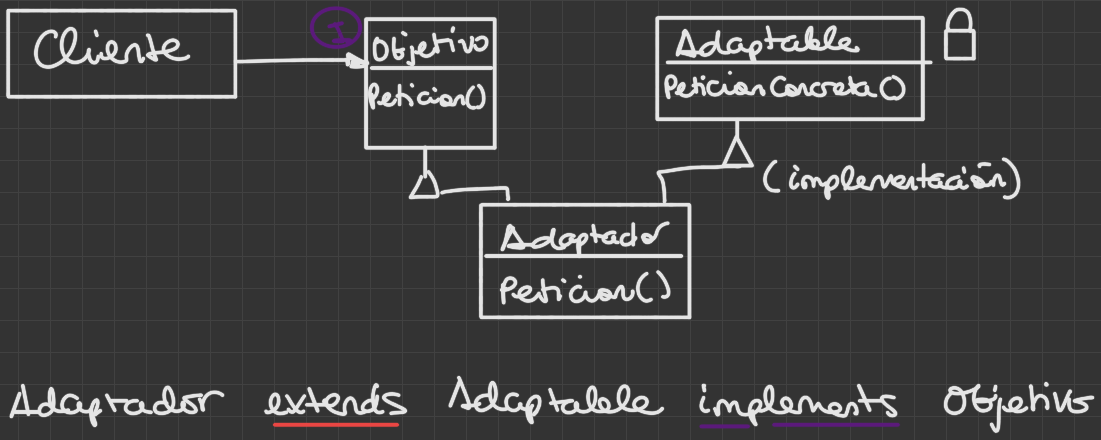 Cliente
I
Objetivo
Peticion()
Adaptable
PeticionConcreta()
(implementación)
Adaptador
Peticion()
Adaptador extends Adaptable implements Objetivo